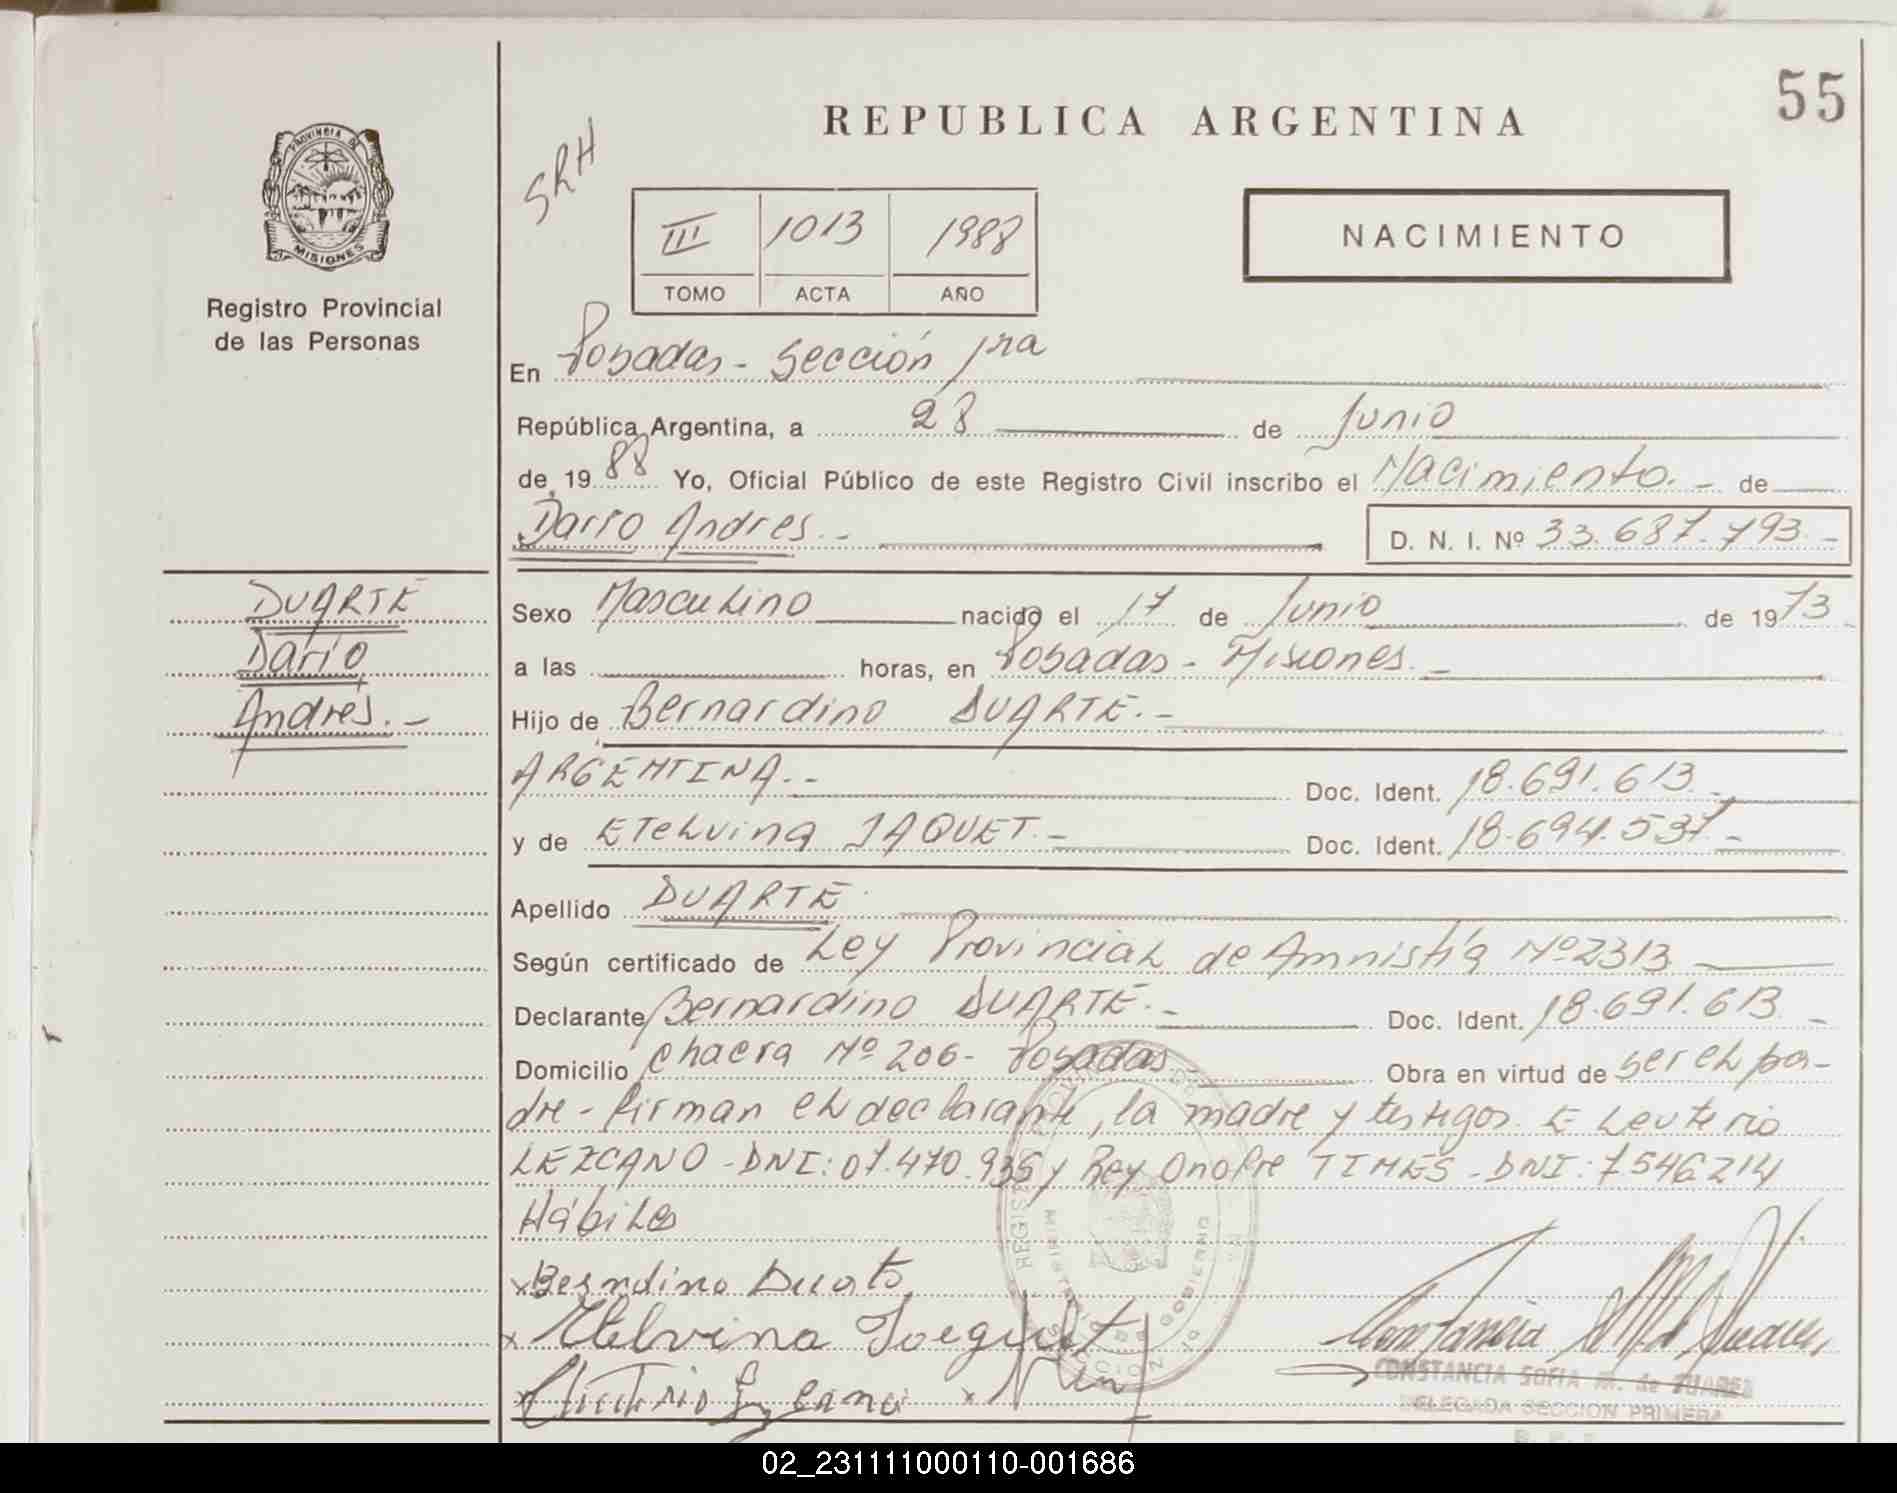 PROVINCIA DE
MISIONES
Registro Provincial
de las Personas
DUARTE
Darío
Andrés.-
55
REPUBLICA ARGENTINA
SRH
III 1013 1988
TOMO ACTA AÑO
NACIMIENTO
En Posadas - Sección 1ra
República Argentina, a 28 de Junio
de 1988 Yo, Oficial Público de este Registro Civil inscribo el Nacimiento.- de
Darío Andrés.- D. N. I. Nº 33.687.793.-
Sexo Masculino nacido el 17 de Junio de 1973
a las horas, en Posadas - Misiones.-
Hijo de Bernardino DUARTE.-
ARGENTINA.- Doc. Ident. 18.691.613.-
y de Etelvina JAQUET.- Doc. Ident. 18.694.537-
Apellido DUARTE
Según certificado de Ley Provincial de Amnistía Nº 2313
Declarante Bernardino DUARTE.- Doc. Ident. 18.691.613.-
Domicilio Chacra Nº 206- Posadas Obra en virtud de ser el pa-
dre - firman el declarante, la madre y testigos. Eleuterio
LEZCANO - DNI: 07.470.936 y Rey Onofre - DNI: 7546214
Hábiles
REGIS
GOBIERNO
x Berndino Duarte
x Etelvina
x x
CONSTANCIA SOFIA M. de SUAREZ
DELEGADA SECCION PRIMERA
02_231111000110-001686